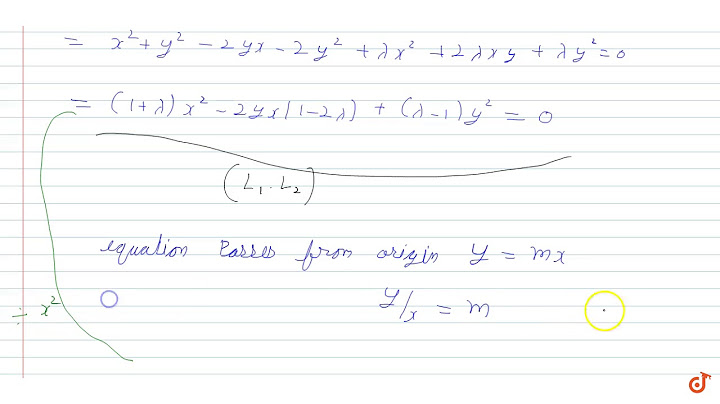 = x² + y² - 2yx - 2y² + λx² + 2λxy + λy² = 0
= (1+λ)x² - 2yx(1-2λ) + (λ-1)y² = 0
(L₁.L₂)
equation Passes from origin y = mx
÷ x²
y/x = m